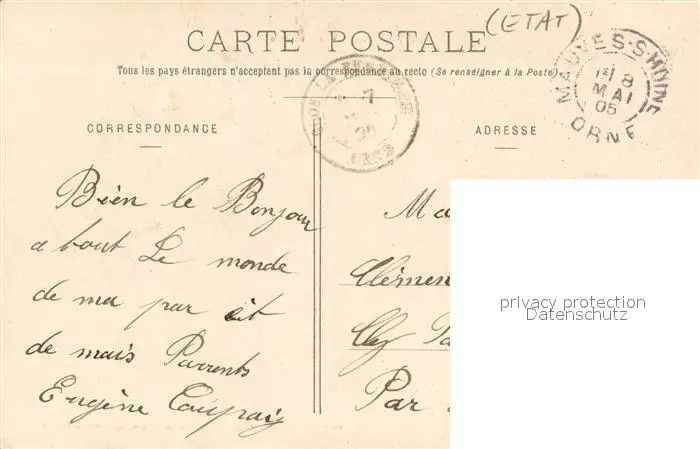 (ETAT)
CARTE POSTALE
Tous les pays étrangers n'acceptent pas la correspondance au recto (Se renseigner à la Poste)
MAUVES-S-HUINE
8
MAI
05
ORNE
7
CORRESPONDANCE
ADRESSE
Bien le Bonjour
a tout Le monde
de ma par et
de mais Parrents
Eugène
Ma
Clémen
Chez
Par
privacy protection
Datenschutz